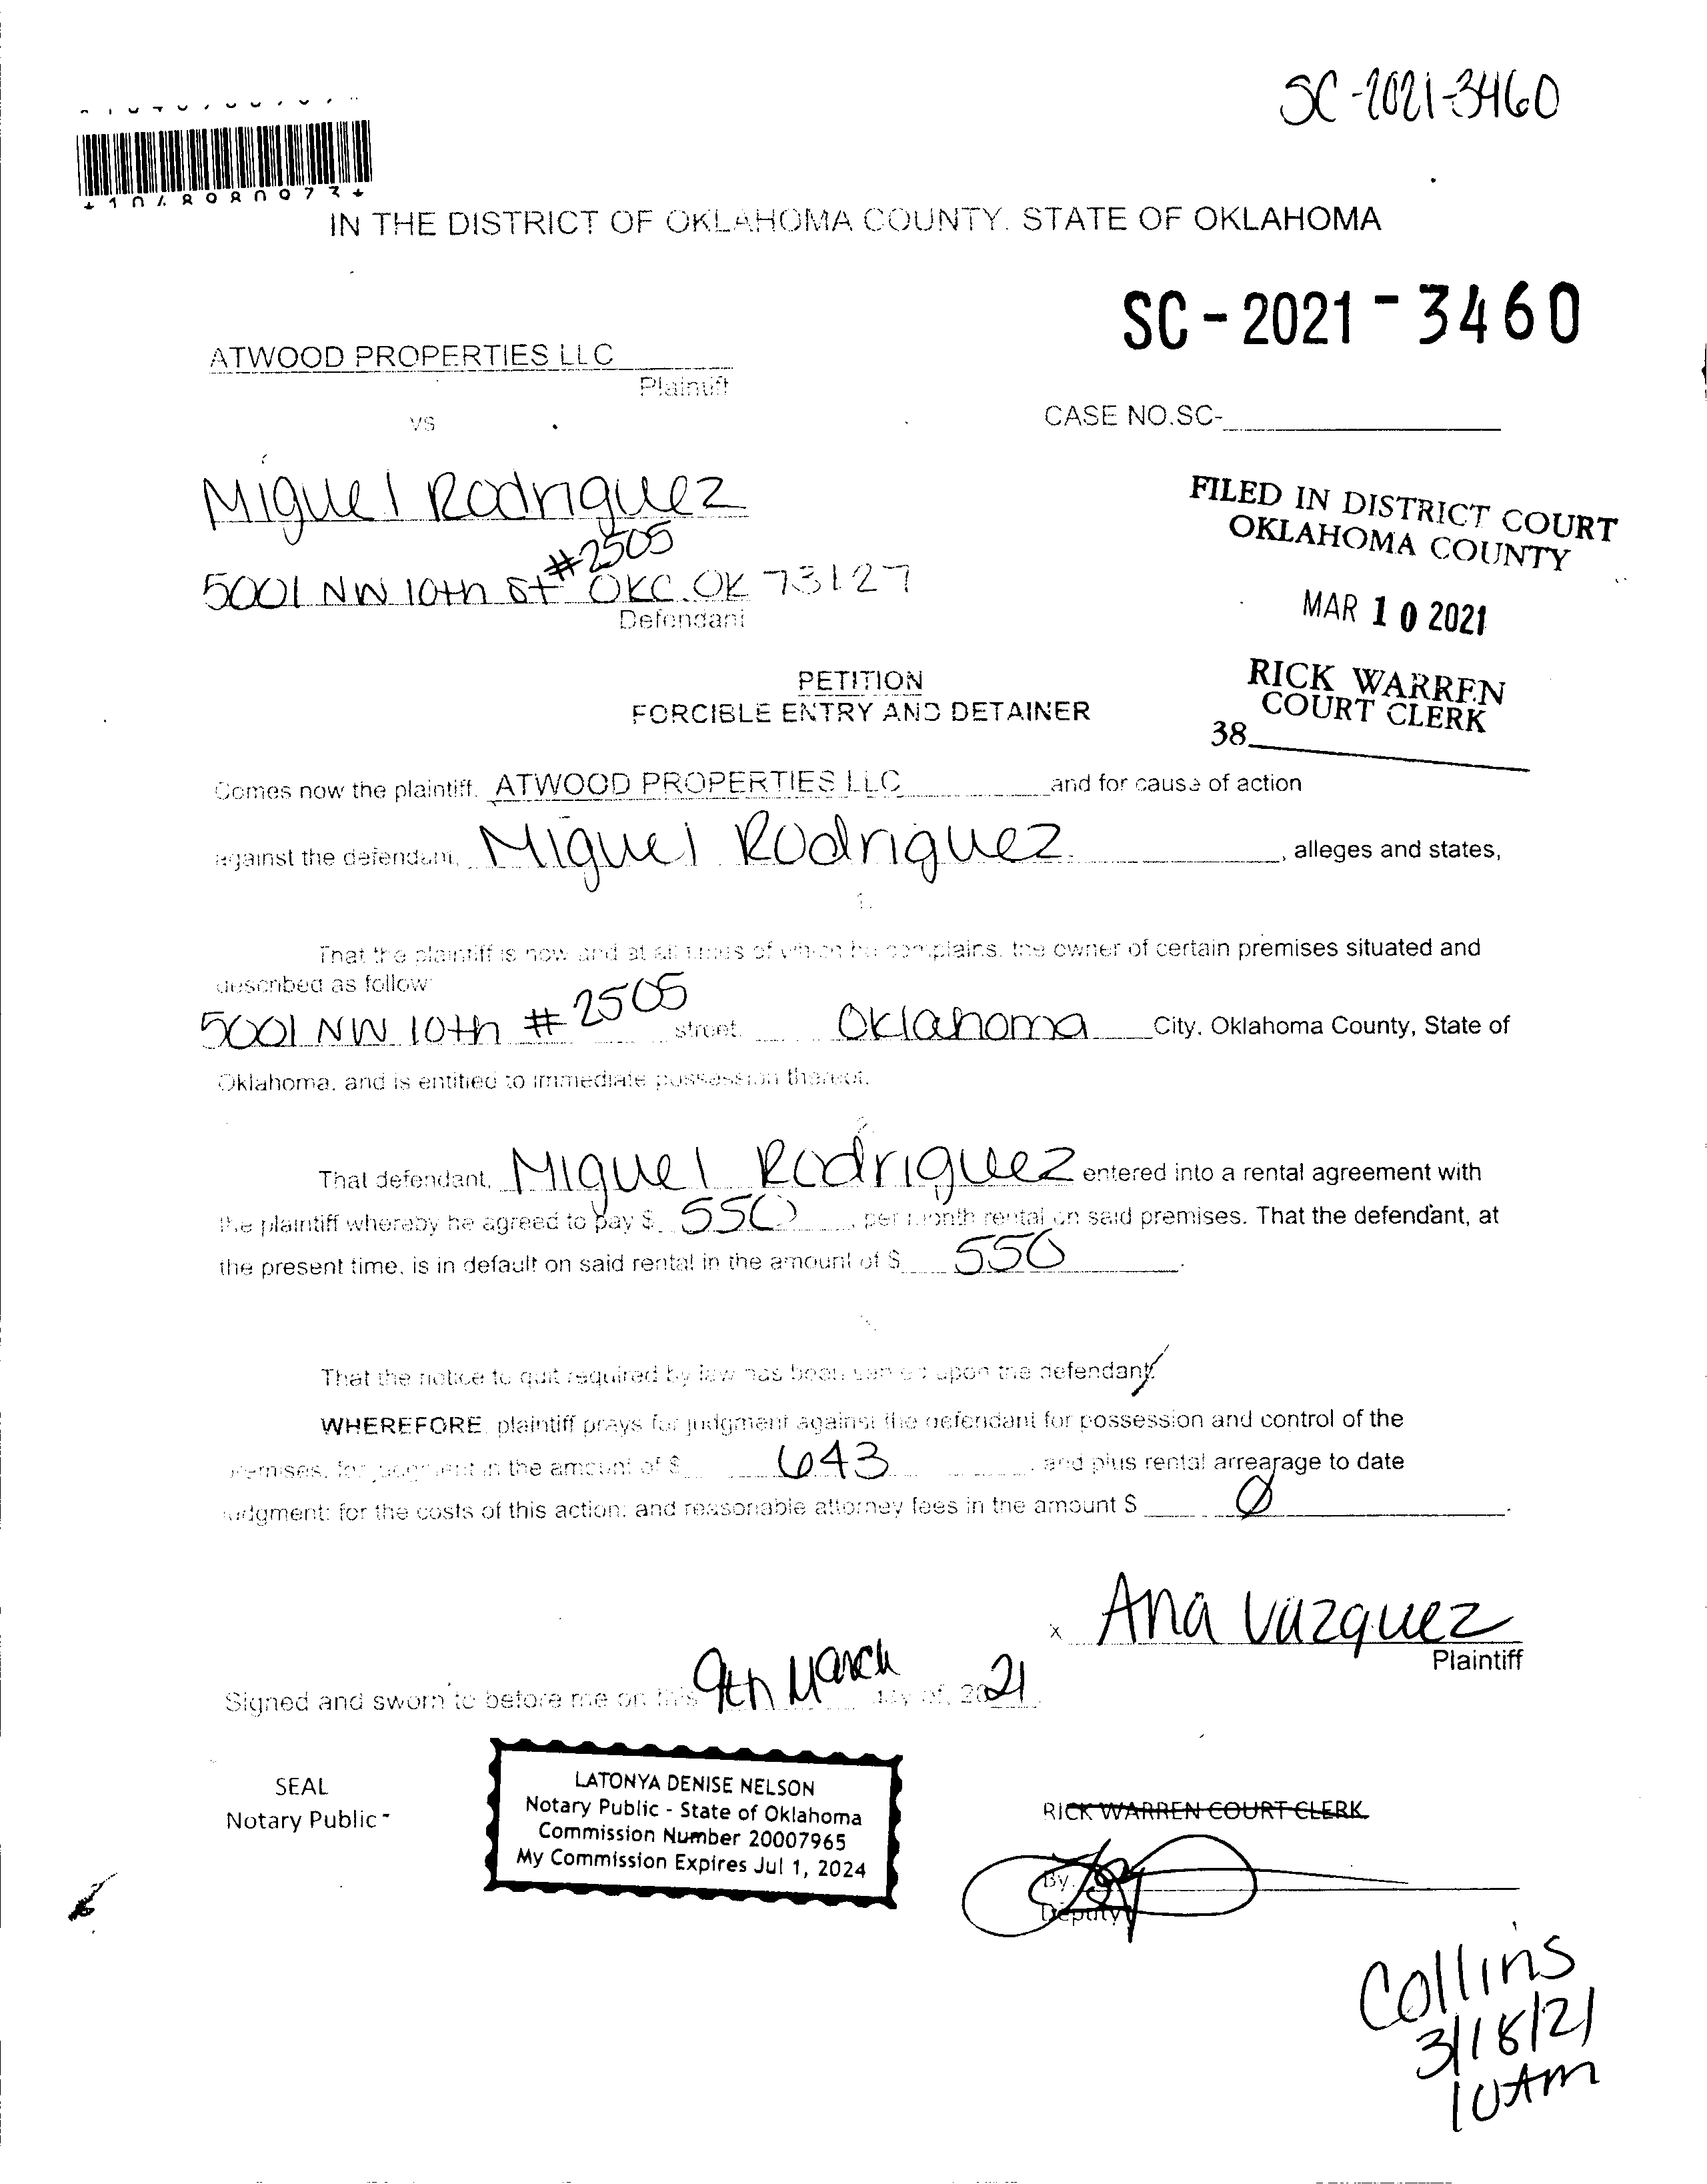 SC-2021-3460
IN THE DISTRICT OF OKLAHOMA COUNTY, STATE OF OKLAHOMA
SC-2021-3460
ATWOOD PROPERTIES LLC
Plaintiff
vs
CASE NO.SC-
Miguel Rodriguez
#2505
5001 NW 10th St OKC.OK 73127
Defendant
FILED IN DISTRICT COURT
OKLAHOMA COUNTY
MAR 10 2021
RICK WARREN
COURT CLERK
38
PETITION
FORCIBLE ENTRY AND DETAINER
Comes now the plaintiff, ATWOOD PROPERTIES LLC and for cause of action
against the defendant, Miguel Rodriguez, alleges and states,
1.
That the plaintiff is now and at all times of which he complains, the owner of certain premises situated and
described as follow:
5001 NW 10th #2505 street, Oklahoma City, Oklahoma County, State of
Oklahoma, and is entitled to immediate possession thereof.
That defendant, Miguel Rodriguez entered into a rental agreement with
the plaintiff whereby he agreed to pay $ 550, per month rental on said premises. That the defendant, at
the present time, is in default on said rental in the amount of $ 550.
That the notice to quit required by law has been served upon the defendant.
WHEREFORE plaintiff prays for judgment against the defendant for possession and control of the
premises, for judgment in the amount of $ 643, and plus rental arrearage to date
judgment; for the costs of this action; and reasonable attorney fees in the amount $ 0.
x Ana Vazquez
Plaintiff
Signed and sworn to before me on this 9th March day of, 2021.
SEAL
Notary Public-
LATONYA DENISE NELSON
Notary Public - State of Oklahoma
Commission Number 20007965
My Commission Expires Jul 1, 2024
RICK WARREN COURT CLERK
By.
Deputy
Collins
3/18/21
10AM